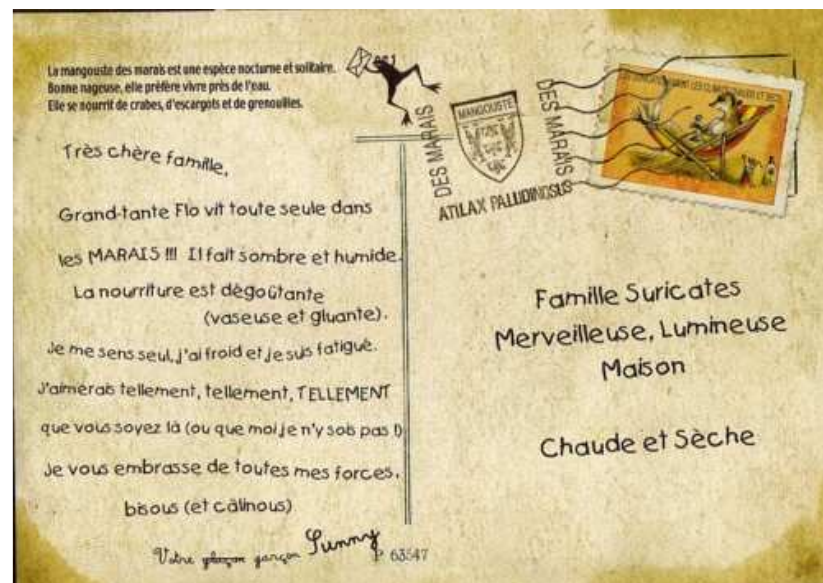 La mangouste des marais est une espèce nocturne et solitaire.
Bonne nageuse, elle préfère vivre près de l'eau.
Elle se nourrit de crabes, d'escargots et de grenouilles.
Très chère famille,
Grand-tante Flo vit toute seule dans
les MARAIS !!! Il fait sombre et humide.
La nourriture est dégoûtante
(vaseuse et gluante).
Je me sens seul, j'ai froid et je suis fatigué.
J'aimerais tellement, tellement, TELLEMENT
que vous soyez là (ou que moi je n'y sois pas !)
Je vous embrasse de toutes mes forces,
bisous (et câlinous)
Votre garçon Sunny
P 63547
DES MARAIS
MANGOUSTE
DES MARAIS
ATILAX PALUDINOSUS
Famille Suricates
Merveilleuse, Lumineuse
Maison
Chaude et Sèche